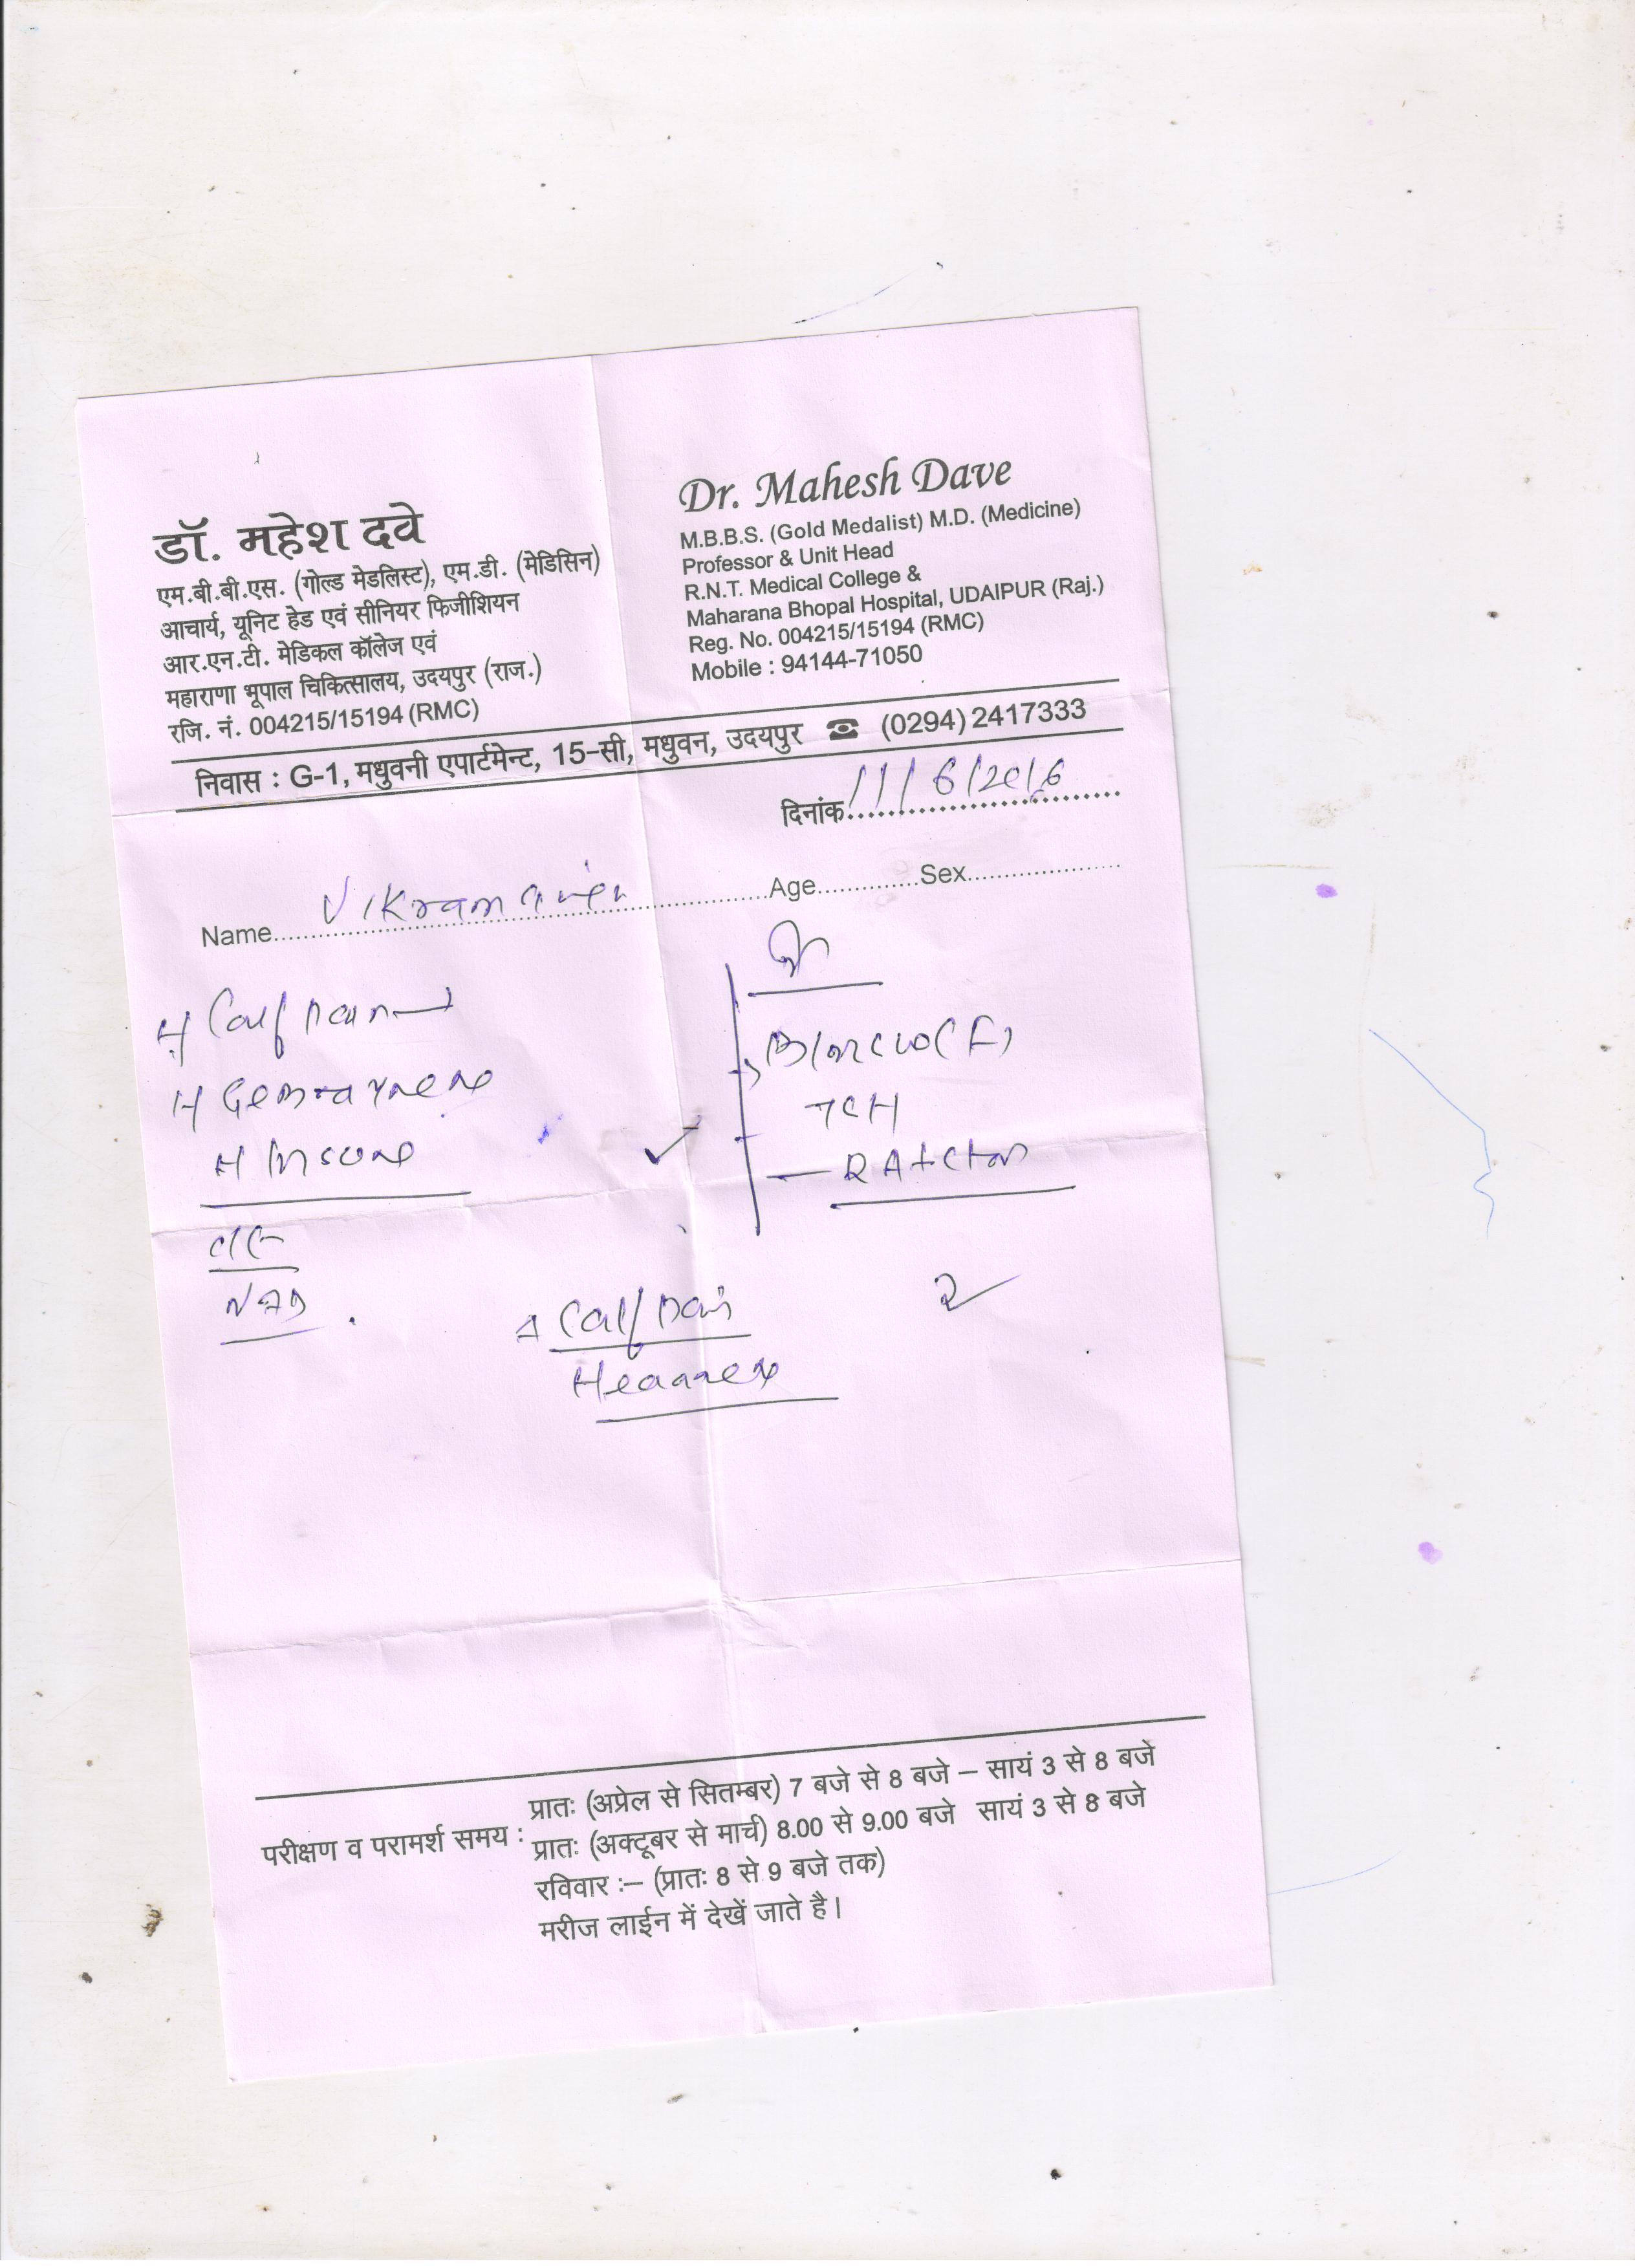 डॉ. महेश दवे
एम.बी.बी.एस. (गोल्ड मेडलिस्ट), एम.डी. (मेडिसिन)
आचार्य, यूनिट हेड एवं सीनियर फिजीशियन
आर.एन.टी. मेडिकल कॉलेज एवं
महाराणा भूपाल चिकित्सालय, उदयपुर (राज.)
रजि. नं. 004215/15194 (RMC)
Dr. Mahesh Dave
M.B.B.S. (Gold Medalist) M.D. (Medicine)
Professor & Unit Head
R.N.T. Medical College &
Maharana Bhopal Hospital, UDAIPUR (Raj.)
Reg. No. 004215/15194 (RMC)
Mobile : 94144-71050
निवास : G-1, मधुवनी एपार्टमेन्ट, 15-सी, मधुवन, उदयपुर ☎ (0294) 2417333
दिनांक 11/6/2016
Name Vikram Age Sex
Calf pain
Calf pain
परीक्षण व परामर्श समय :
प्रातः (अप्रेल से सितम्बर) 7 बजे से 8 बजे – सायं 3 से 8 बजे
प्रातः (अक्टूबर से मार्च) 8.00 से 9.00 बजे सायं 3 से 8 बजे
रविवार :– (प्रातः 8 से 9 बजे तक)
मरीज लाईन में देखें जाते है।